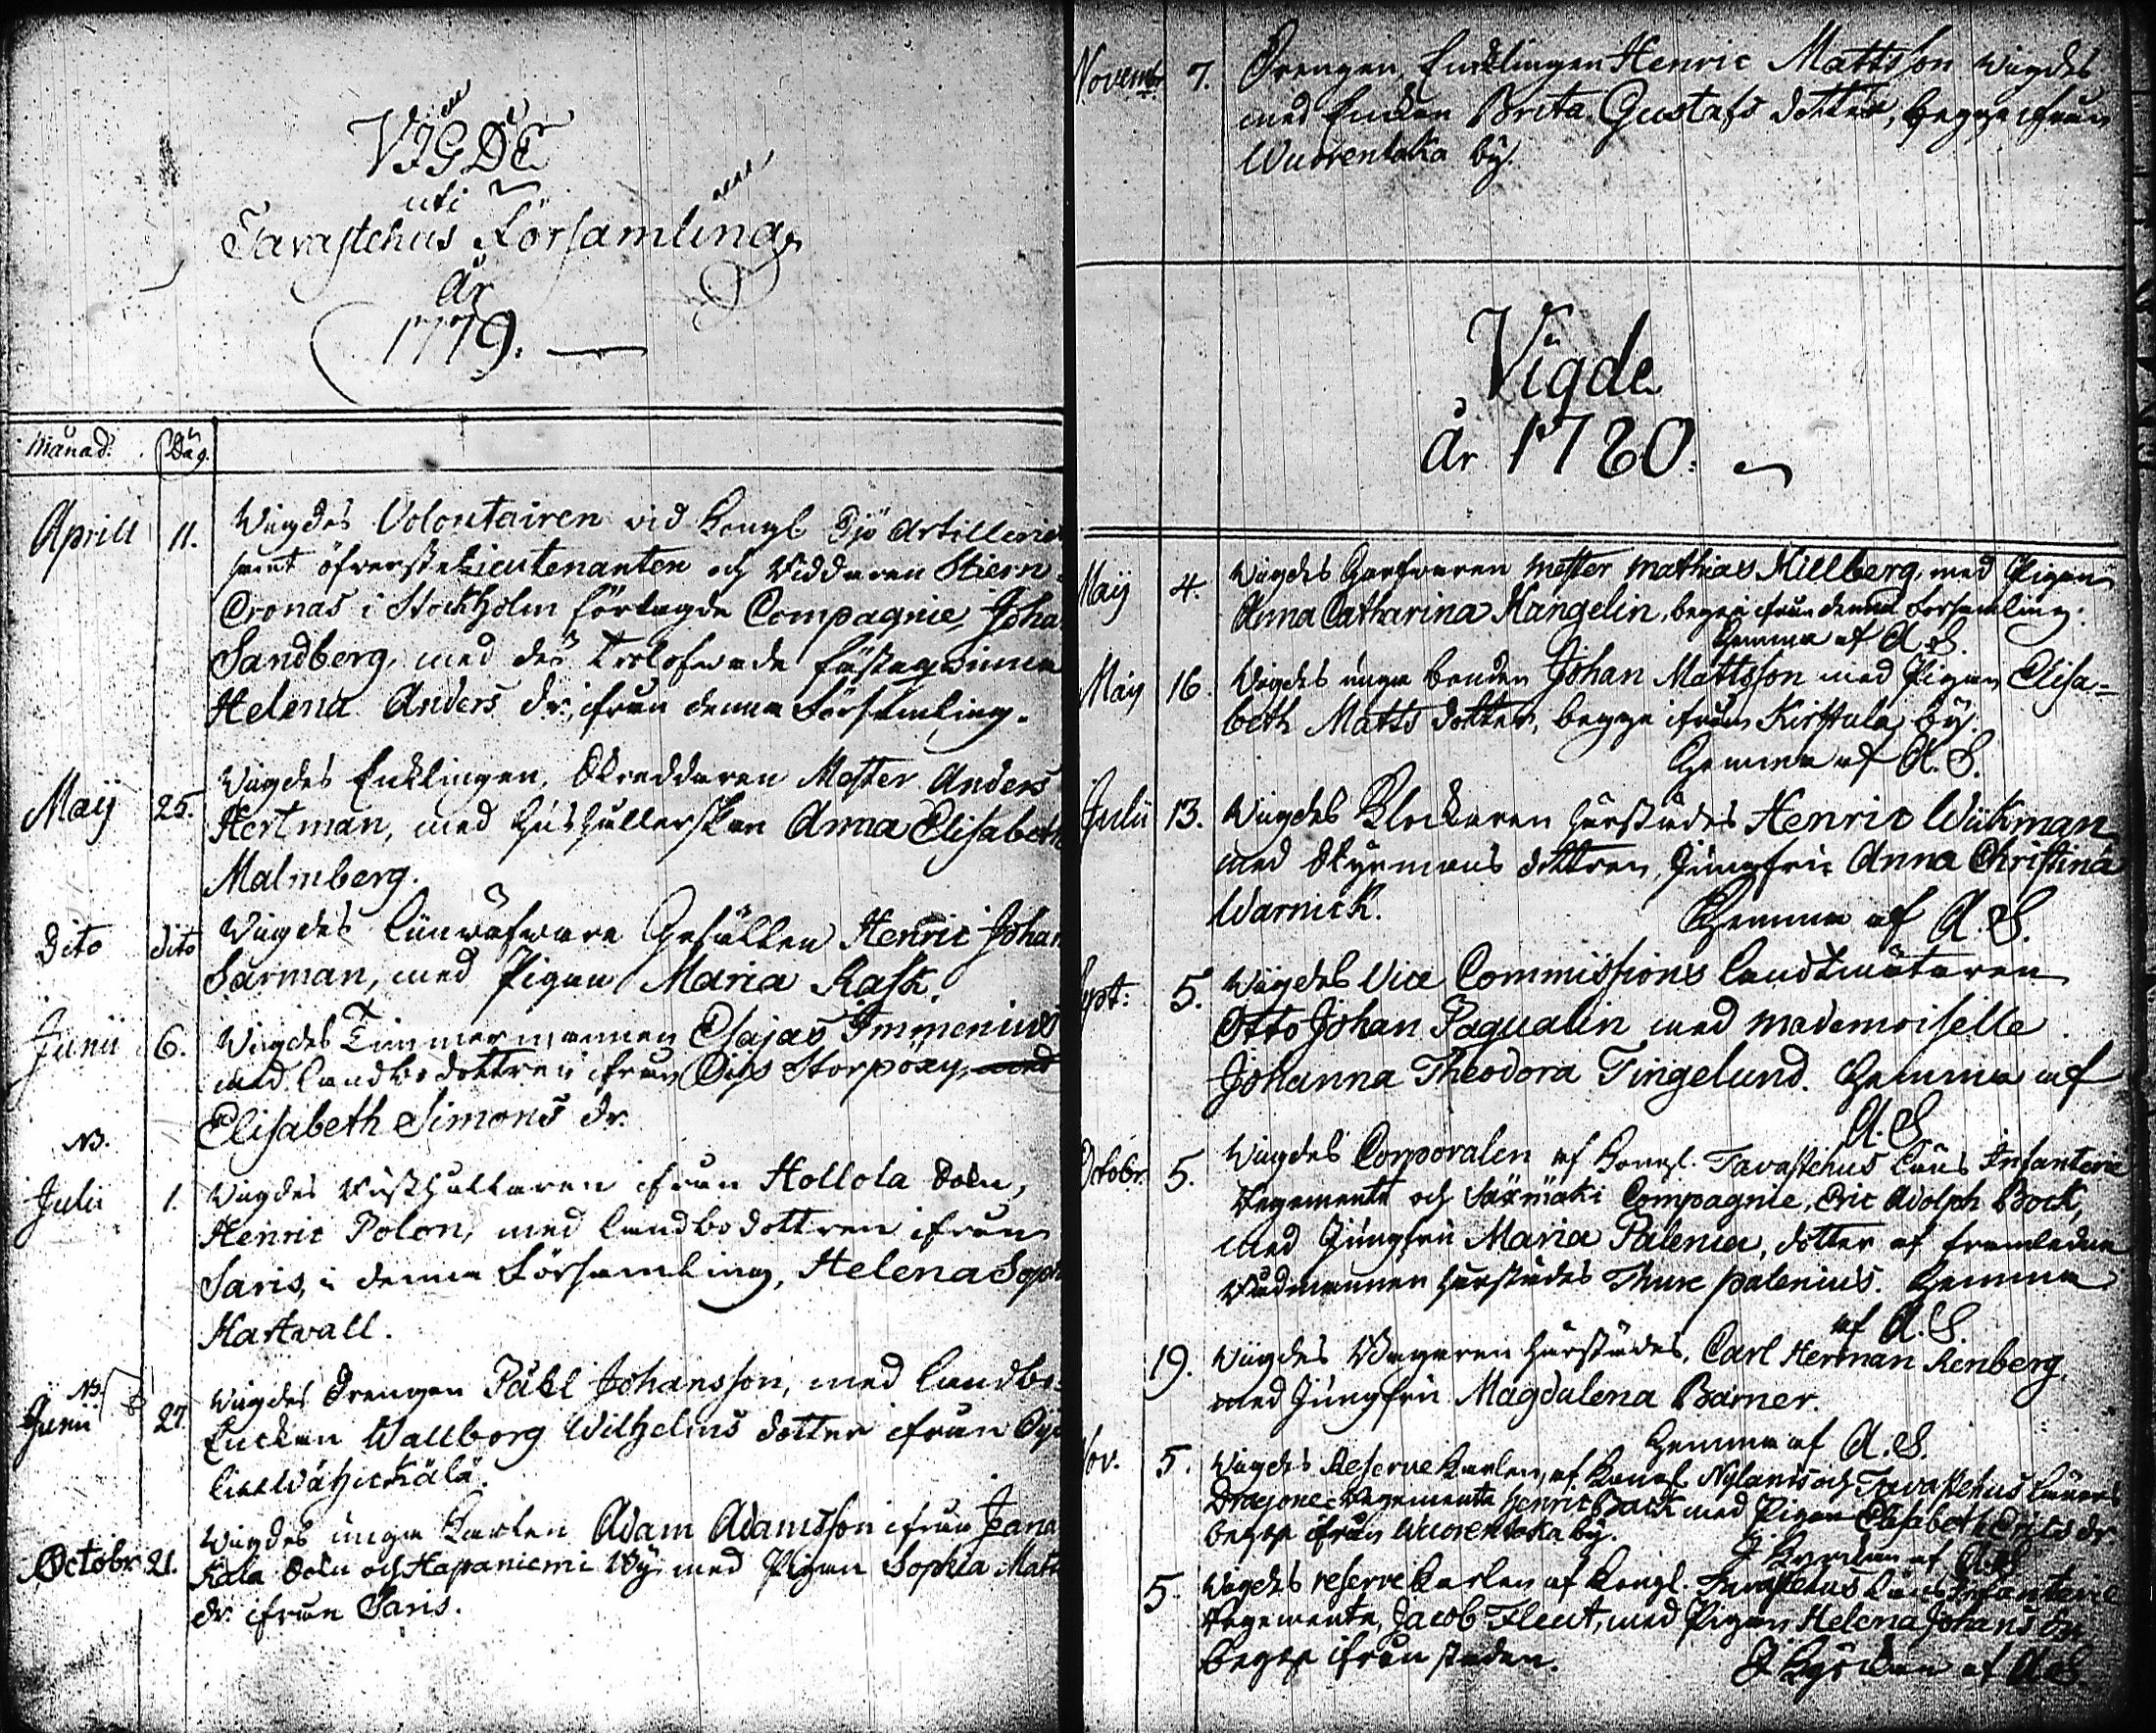 VIGDE
uti
Tavastehus Församling
År
1779.
Månad: Dag.
Aprill 11. Wigdes Volontairen vid Kongl Sjö Artilleriet
samt öfversteLieutenanten och Riddaren Stiern-
Cronas i Stockholm förlagde Compagnie, Joha
Sandberg, med des Trolofwade fästeqwinna
Helena Anders dr, ifrån denna Församling.
Maij 25. Wigdes Enklingen, Skreddaren Mester Anders
Hertman, med Hushållerskan Anna Elisabeth
Malmberg.
Dito dito Wigdes Linwäfware Gesällen Henric Johan
Sarman, med Pigan Maria Rask.
Junii 6. Wigdes Timmermannen Esajas Immenius
med Landbodottren ifrån Öijs Storpoxy, med
Elisabeth Simons dr.
NB.
Julii 1. Wigdes Rusthållaren ifrån Hollola Sokn,
Henric Polon, med Landbodottren ifrån
Saris, i denna Församling, Helena Soph
Hartvall.
NB.
Junii 27. Wigdes Drengen Påhl Johansson, med Landbo-
Enckan Wallborg Wilhelms dotter ifrån Öij
LillWähickälä.
Octobr 21. Wigdes unga Karlen Adam Adamsson ifrån Jana
Kala Sokn och Hapaniemi By med Pigan Sophia Matts
dr. ifrån Saris.
Novembr. 7. Drengen, Encklingen Henric Mattsson wigdes
med Enckan Brita Gustafs dotter, begge ifrån
Wuorentaka by.
Vigde
år 1780.
Maij 4. Wigdes Garfvaren Mester Mathias Hillberg, med Pigan
Anna Catharina Hangelin, begge ifrån denna Församling.
Hemma af A. S.
Maij 16. Wigdes unga bonden Johan Mattsson med Pigan Elisa-
beth Matts dotter, begge ifrån Kirstula by.
Hemma af A. S.
Julii 13. Wigdes Klockaren härstädes Henric Wiikman
med Styrmans dottren, Jungfru Anna Christina
Warnick. Hemma af A. S.
ept: 5. Wigdes Vice Commissions Landtmätaren
Otto Johan Paqualin med Mademoiselle
Johanna Theodora Tingelund. Hemma af
A. S.
Octobr. 5. Wigdes Corporalen af Kongl. Tavastehus Läns Infanterie
Regemente och Säxmäki Compagnie, Eric Adolph Bock,
med Jungfru Maria Palenia, dotter af framledne
Rådmannen härstädes Thure Palenius. Hemma
af A. S.
19. Wigdes Bagaren härstädes, Carl Herman Renberg,
med Jungfru Magdalena Barner.
Hemma af A. S.
Nov. 5. Wigdes Reserve Karlen, af Kongl. Nylands och Tavastehus Läners
Dragone-Regemente Henric Back med Pigan Elisabeth dr.
begge ifrån Wuorentaka by. I Kyrckan af A. S.
5. Wigdes reserve Karlen af Kongl. Tavastehus Läns Infanterie
Regemente, Jacob Fleut, med Pigan Helena Johans dr.
begge ifrån staden. I Kyrckan af A. S.